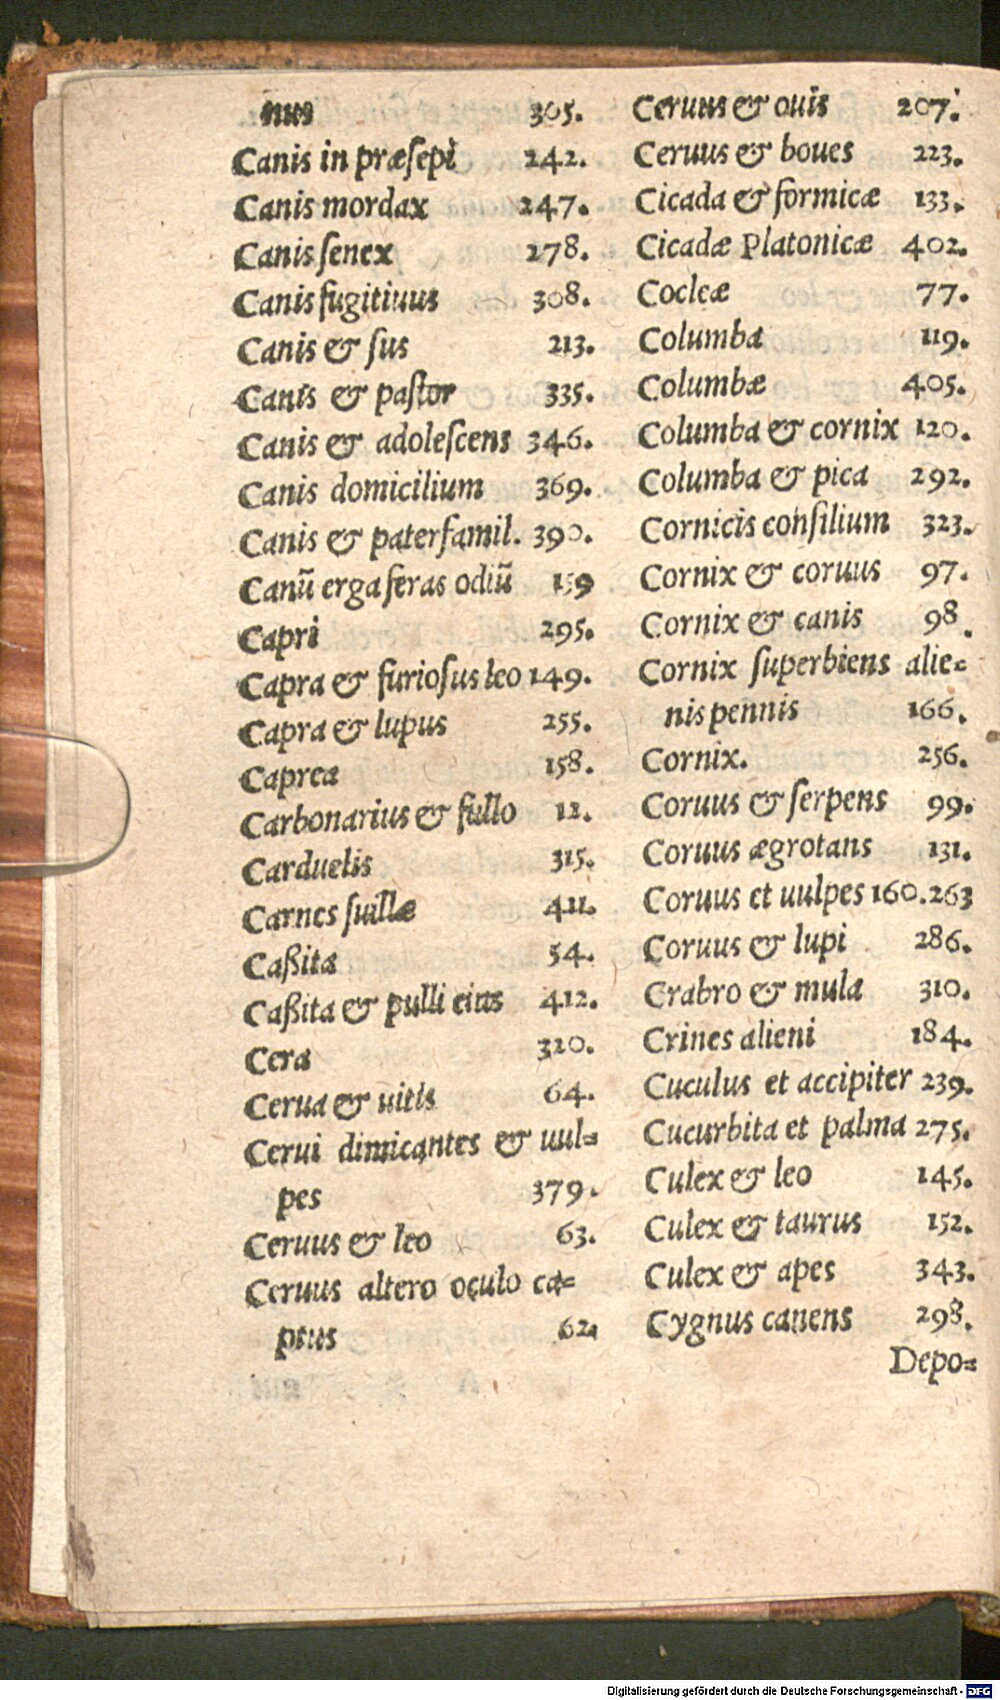 nus 305.
Canis in præsepi 242.
Canis mordax 247.
Canis senex 278.
Canis fugitiuus 308.
Canis & sus 213.
Canis & pastor 335.
Canis & adolescens 346.
Canis domicilium 369.
Canis & paterfamil. 390.
Canū erga feras odiū 159
Capri 295.
Capra & furiosus leo 149.
Capra & lupus 255.
Caprea 158.
Carbonarius & fullo 12.
Carduelis 315.
Carnes suillæ 411.
Caßita 54.
Caßita & pulli eius 412.
Cera 320.
Cerua & uitis 64.
Cerui dimicantes & uul=
pes 379.
Ceruus & leo 63.
Ceruus altero oculo ca=
ptus 62.
Ceruus & ouis 207.
Ceruus & boues 223.
Cicada & formicæ 133.
Cicadæ Platonicæ 402.
Cocleæ 77.
Columba 119.
Columbæ 405.
Columba & cornix 120.
Columba & pica 292.
Cornicis consilium 323.
Cornix & coruus 97.
Cornix & canis 98.
Cornix superbiens alie=
nis pennis 166.
Cornix. 256.
Coruus & serpens 99.
Coruus ægrotans 131.
Coruus et uulpes 160.263
Coruus & lupi 286.
Crabro & mula 310.
Crines alieni 184.
Cuculus et accipiter 239.
Cucurbita et palma 275.
Culex & leo 145.
Culex & taurus 152.
Culex & apes 343.
Cygnus canens 298.
Depo=
Digitalisierung gefördert durch die Deutsche Forschungsgemeinschaft - DFG